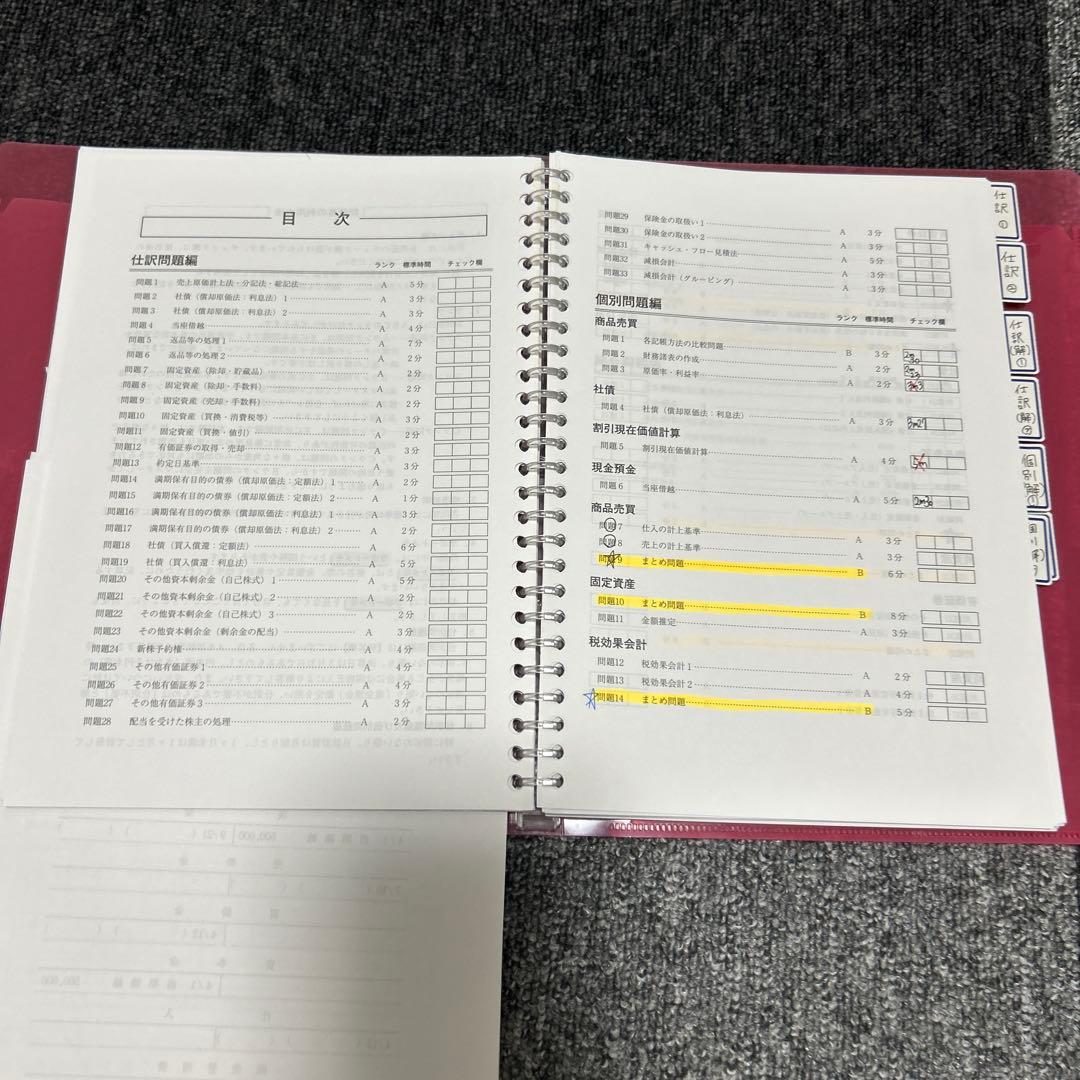 目 次
仕訳問題編
ランク 標準時間 チェック欄
問題1 売上原価計上法・分記法・総記法 A 5分
問題2 社債（償却原価法：利息法）1 A 3分
問題3 社債（償却原価法：利息法）2 A 3分
問題4 当座借越 A 4分
問題5 返品等の処理1 A 7分
問題6 返品等の処理2 A 2分
問題7 固定資産（除却・貯蔵品） A 2分
問題8 固定資産（除却・手数料） A 2分
問題9 固定資産（売却・手数料） A 2分
問題10 固定資産（買換・消費税等） A 3分
問題11 固定資産（買換・値引） A 2分
問題12 有価証券の取得・売却 A 3分
問題13 約定日基準 A 3分
問題14 満期保有目的の債券（償却原価法：定額法）1 A 2分
問題15 満期保有目的の債券（償却原価法：定額法）2 A 1分
問題16 満期保有目的の債券（償却原価法：利息法）1 A 3分
問題17 満期保有目的の債券（償却原価法：利息法）2 A 2分
問題18 社債（買入償還：定額法） A 6分
問題19 社債（買入償還：利息法） A 5分
問題20 その他資本剰余金（自己株式）1 A 5分
問題21 その他資本剰余金（自己株式）2 A 2分
問題22 その他資本剰余金（自己株式）3 A 2分
問題23 その他資本剰余金（剰余金の配当） A 3分
問題24 新株予約権 A 4分
問題25 その他有価証券1 A 4分
問題26 その他有価証券2 A 4分
問題27 その他有価証券3 A 3分
問題28 配当を受けた株主の処理 A 2分
問題29 保険金の取扱い1 A 3分
問題30 保険金の取扱い2 A 3分
問題31 キャッシュ・フロー見積法 A 3分
問題32 減損会計 A 5分
問題33 減損会計（グルーピング） A 3分
個別問題編
ランク 標準時間 チェック欄
商品売買
問題1 各記帳方法の比較問題 B 3分 2m30
問題2 財務諸表の作成 A 2分 2m23
問題3 原価率・利益率 A 2分
社債
問題4 社債（償却原価法：利息法） A 3分 3m27
割引現在価値計算
問題5 割引現在価値計算 A 4分 5m
現金預金
問題6 当座借越 A 5分 2m30
商品売買
問題7 仕入の計上基準 A 3分
問題8 売上の計上基準 A 3分
問題9 まとめ問題 B 6分
固定資産
問題10 まとめ問題 B 8分
問題11 金額推定 A 3分
税効果会計
問題12 税効果会計1 A 2分
問題13 税効果会計2 A 4分
問題14 まとめ問題 B 5分
仕訳①
仕訳②
仕訳(解)①
仕訳(解)②
個別(解)①